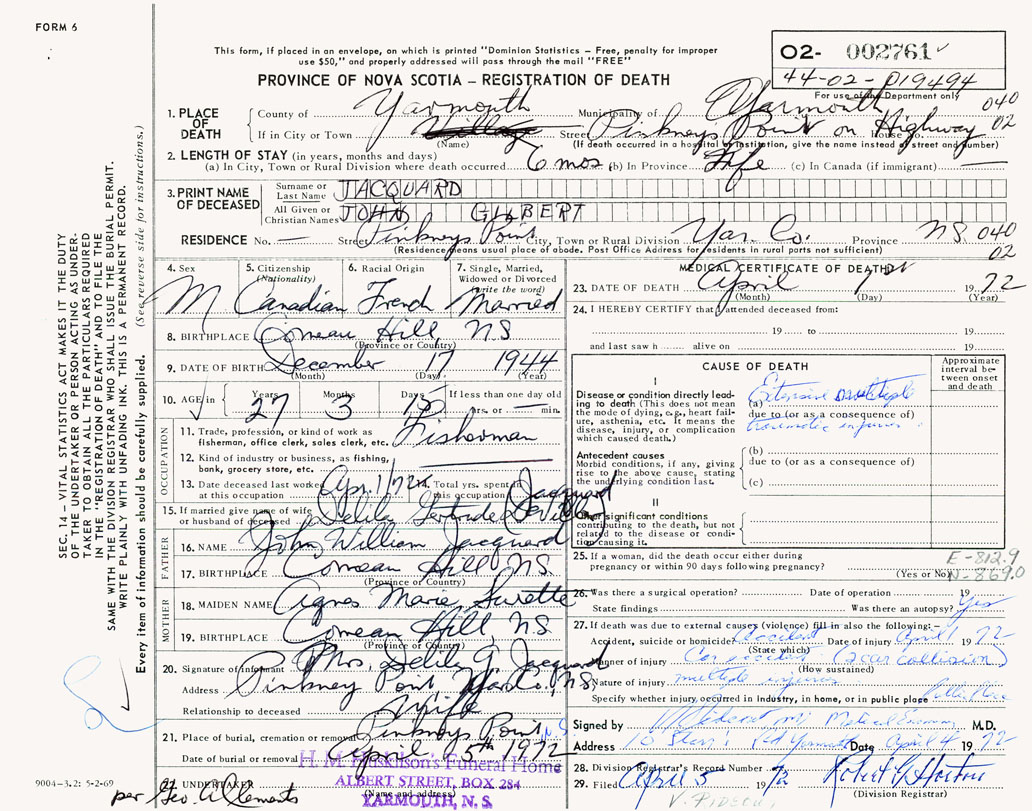 FORM 6
This form, if placed in an envelope, on which is printed "Dominion Statistics – Free, penalty for improper
use $50," and properly addressed will pass through the mail "FREE"
PROVINCE OF NOVA SCOTIA – REGISTRATION OF DEATH
02- 002761
44-02-019494
For use of the Department only
040
02
1. PLACE OF DEATH
County of Yarmouth Municipality of Yarmouth
If in City or Town Village Street Pinkneys Point on Highway House No.
(Name) (If death occurred in a hospital or institution, give the name instead of street and number)
2. LENGTH OF STAY (in years, months and days)
(a) In City, Town or Rural Division where death occurred 6 mos (b) In Province Life (c) In Canada (if immigrant) —
3. PRINT NAME OF DECEASED
Surname or Last Name JACQUARD
All Given or Christian Names JOHN GILBERT
RESIDENCE No. — Street Pinkneys Point City, Town or Rural Division Yar. Co. Province N.S. 040
02
(Residence means usual place of abode. Post Office Address for residents in rural parts not sufficient)
4. Sex M
5. Citizenship (Nationality) Canadian
6. Racial Origin French
7. Single, Married, Widowed or Divorced (write the word) Married
8. BIRTHPLACE Comeau Hill, NS
(Province or Country)
9. DATE OF BIRTH December 17 1944
(Month) (Day) (Year)
10. AGE in Years 27 Months 3 Days 15 If less than one day old
hrs. or min.
OCCUPATION
11. Trade, profession, or kind of work as
fisherman, office clerk, sales clerk, etc. Fisherman
12. Kind of industry or business, as fishing,
bank, grocery store, etc.
13. Date deceased last worked
at this occupation Apr. 1/72
14. Total yrs. spent in
this occupation
15. If married give name of wife
or husband of deceased Delila Gertrude Jacquard
FATHER
16. NAME John William Jacquard
17. BIRTHPLACE Comeau Hill, N.S.
(Province or Country)
MOTHER
18. MAIDEN NAME Agnes Marie Surette
19. BIRTHPLACE Comeau Hill, N.S.
(Province or Country)
20. Signature of informant Mrs. Delila G. Jacquard
Address Pinkney Point Yar. Co., N.S.
Relationship to deceased Wife
21. Place of burial, cremation or removal Pinkneys Point N.S
Date of burial or removal April 5th 1972
UNDERTAKER
(Name and address)
Funeral Home
ALBERT STREET, BOX 284
YARMOUTH, N. S.
per Geo. A. Clements
9004-3.2: 5-2-69
MEDICAL CERTIFICATE OF DEATH
23. DATE OF DEATH April 1 1972
(Month) (Day) (Year)
24. I HEREBY CERTIFY that I attended deceased from:
19 to 19
and last saw h alive on 19
CAUSE OF DEATH
Approximate interval between onset and death
I
Disease or condition directly leading to death (This does not mean the mode of dying, e.g., heart failure, asthenia, etc. It means the disease, injury, or complication which caused death.)
(a) Extensive multiple
due to (or as a consequence of)
traumatic injuries
Antecedent causes
Morbid conditions, if any, giving rise to the above cause, stating the underlying condition last.
(b)
due to (or as a consequence of)
(c)
II
Other significant conditions
contributing to the death, but not related to the disease or condition causing it.
25. If a woman, did the death occur either during
pregnancy or within 90 days following pregnancy?
(Yes or No)
E-812.9
N-869.0
26. Was there a surgical operation? Date of operation 19
State findings Was there an autopsy? Yes
27. If death was due to external causes (violence) fill in also the following:–
Accident, suicide or homicide? Accident Date of injury April 1 1972
(State which)
Manner of injury Car accident (2 car collision)
(How sustained)
Nature of injury multiple injuries
Specify whether injury occurred in industry, in home, or in public place Public Place
Signed by Medical Examiner M.D.
Address Yarmouth Date April 4 1972
28. Division Registrar's Record Number
29. Filed April 5 1972 Robert G. Horton
(Division Registrar)
SEC. 14 – VITAL STATISTICS ACT MAKES IT THE DUTY
OF THE UNDERTAKER OR PERSON ACTING AS UNDER-
TAKER TO OBTAIN ALL THE PARTICULARS REQUIRED
IN THE "REGISTRATION OF DEATH" AND TO FILE THE
SAME WITH DIVISION REGISTRAR WHO SHALL ISSUE THE BURIAL PERMIT.
WRITE PLAINLY WITH UNFADING INK. THIS IS A PERMANENT RECORD.
Every item of information should be carefully supplied. (See reverse side for instructions.)